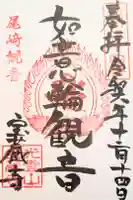 奉拝 令和 年十 月十四日
如意輪観音
尾崎観音
宝蔵寺